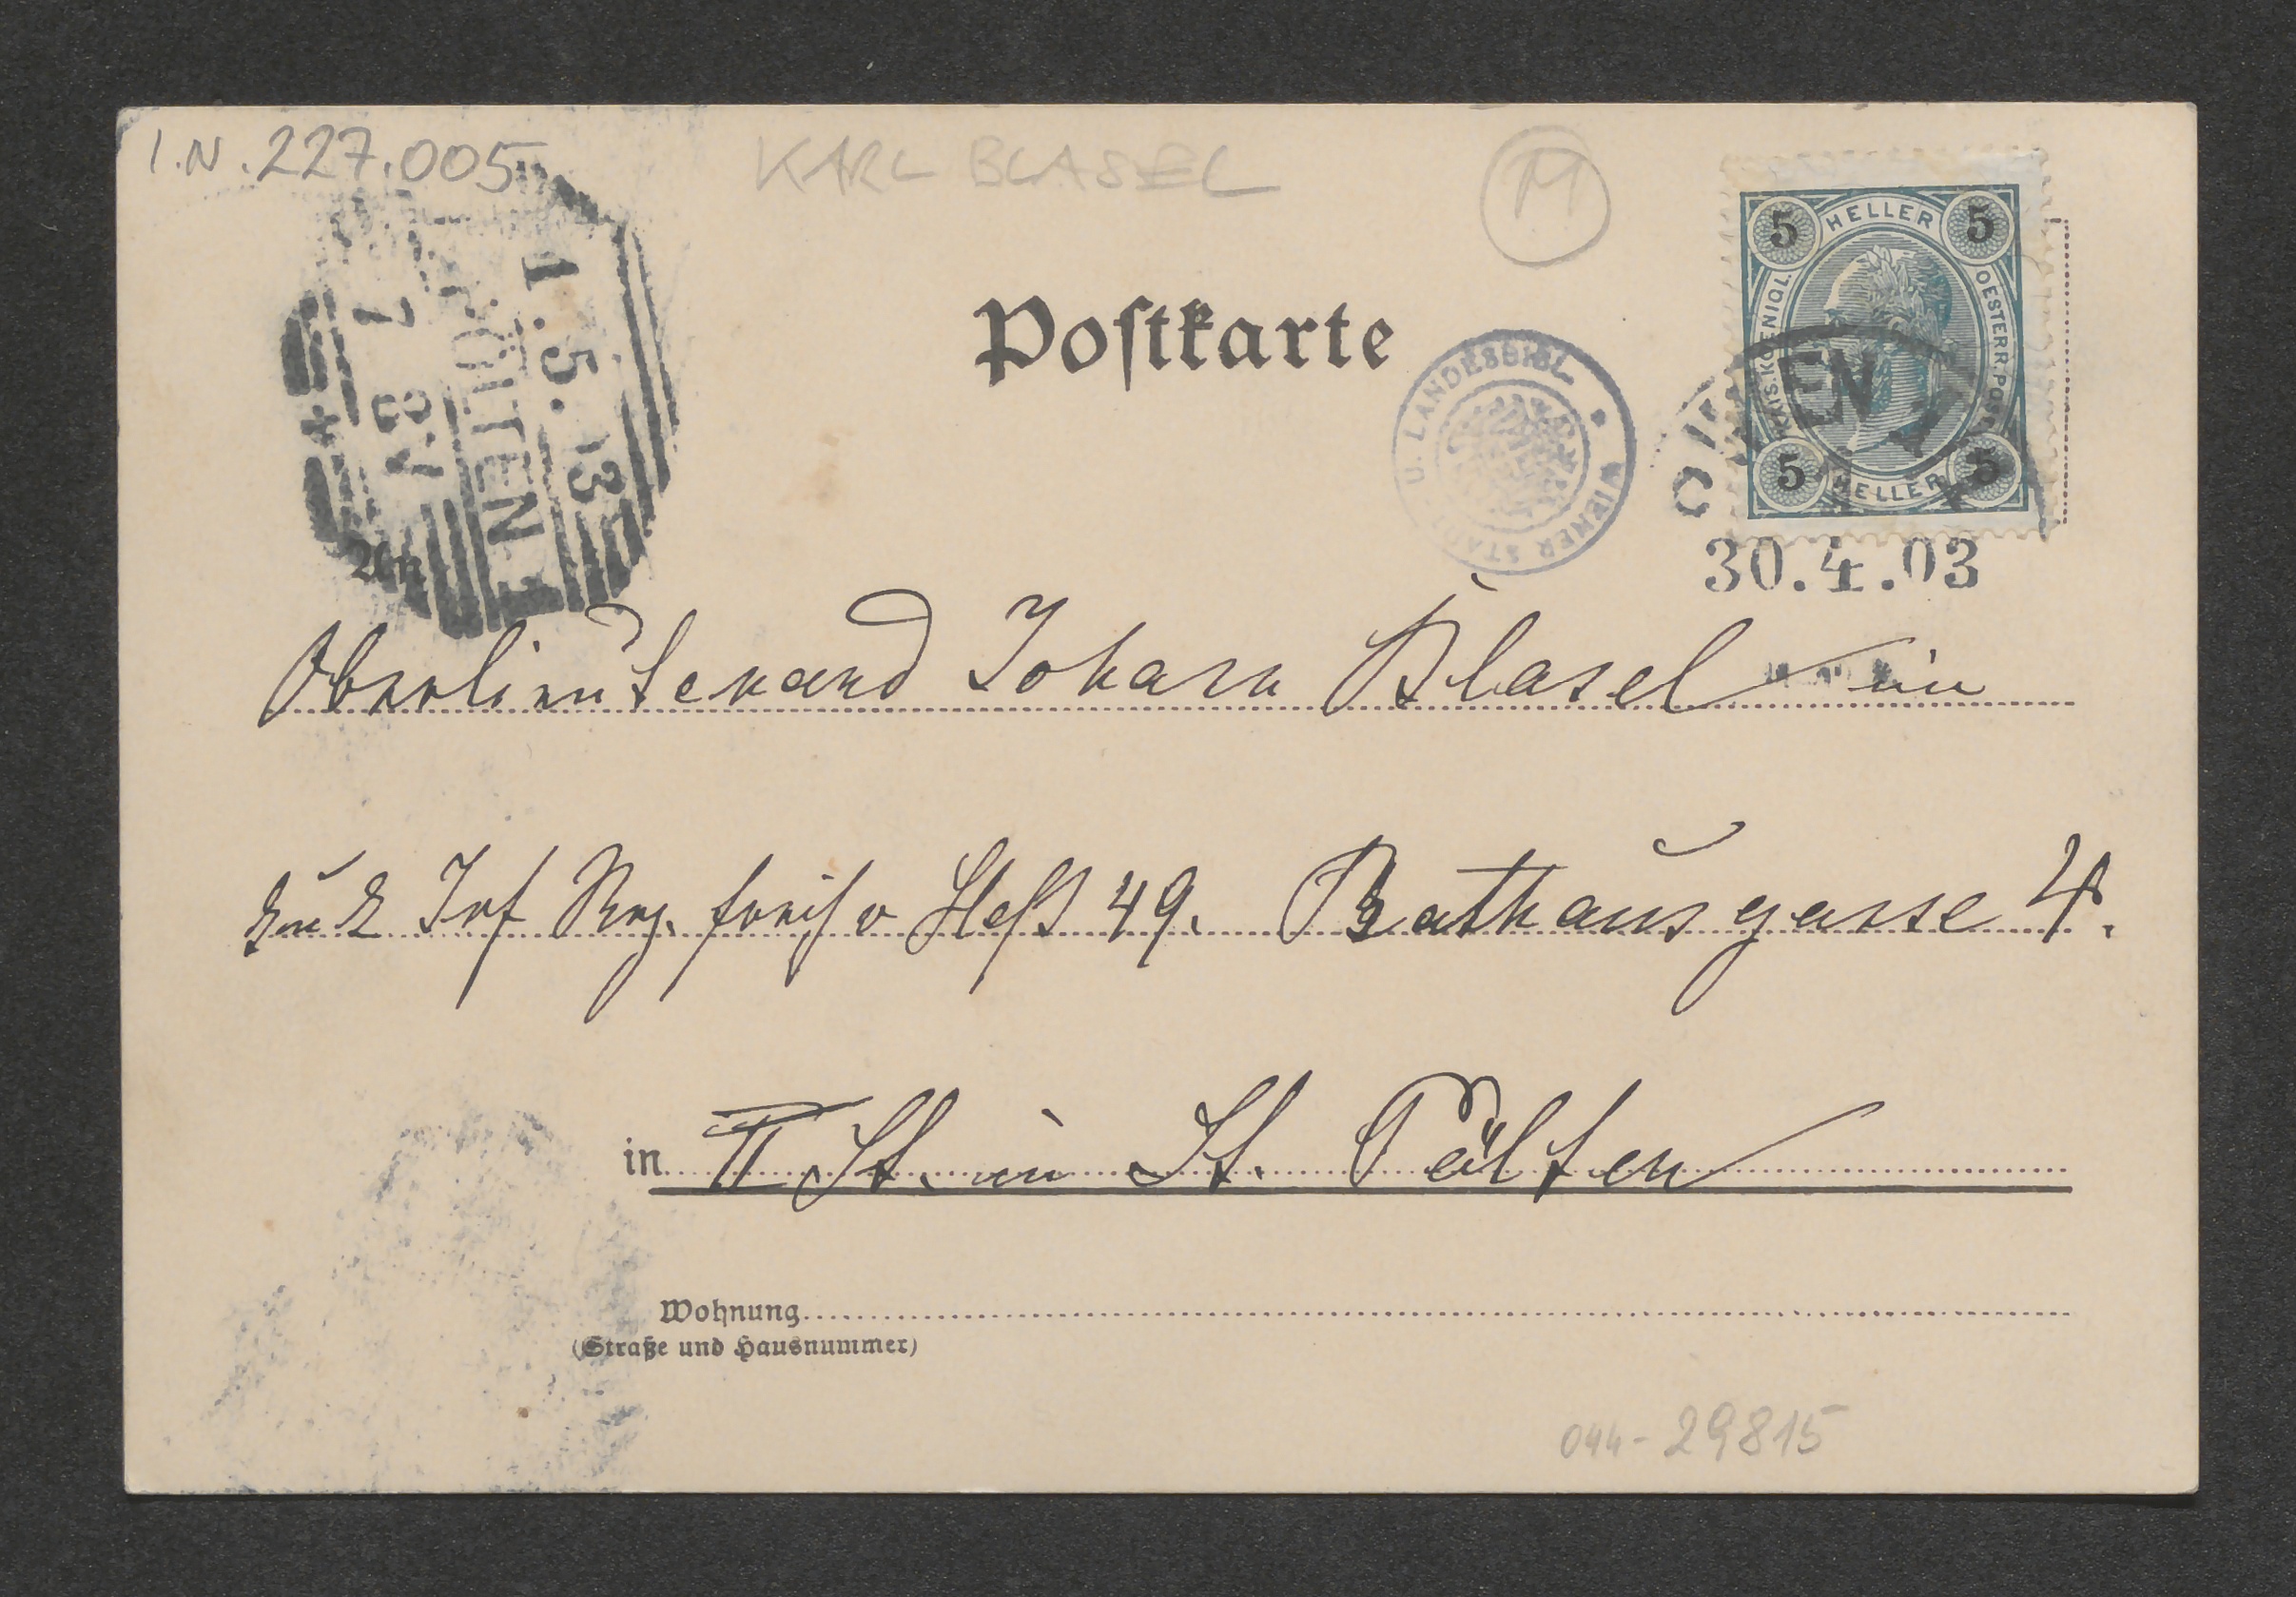 I.N. 227.005
KARL BLASEL
M
5 HELLER 5
KAIS. KOENIGL. OESTERR. POST
5 HELLER 5
Postkarte
U. LANDESBIBL. * WIENER STADT
1.5.03
PÖLTEN 1
7 8V
WIEN 1
30.4.03
Oberlieutenand Johann Blasel im
k u k Inf Reg. Freih v Heß 49. Rathausgasse 4.
in II St. in St. Pölten
Wohnung
(Straße und Hausnummer)
044-29815